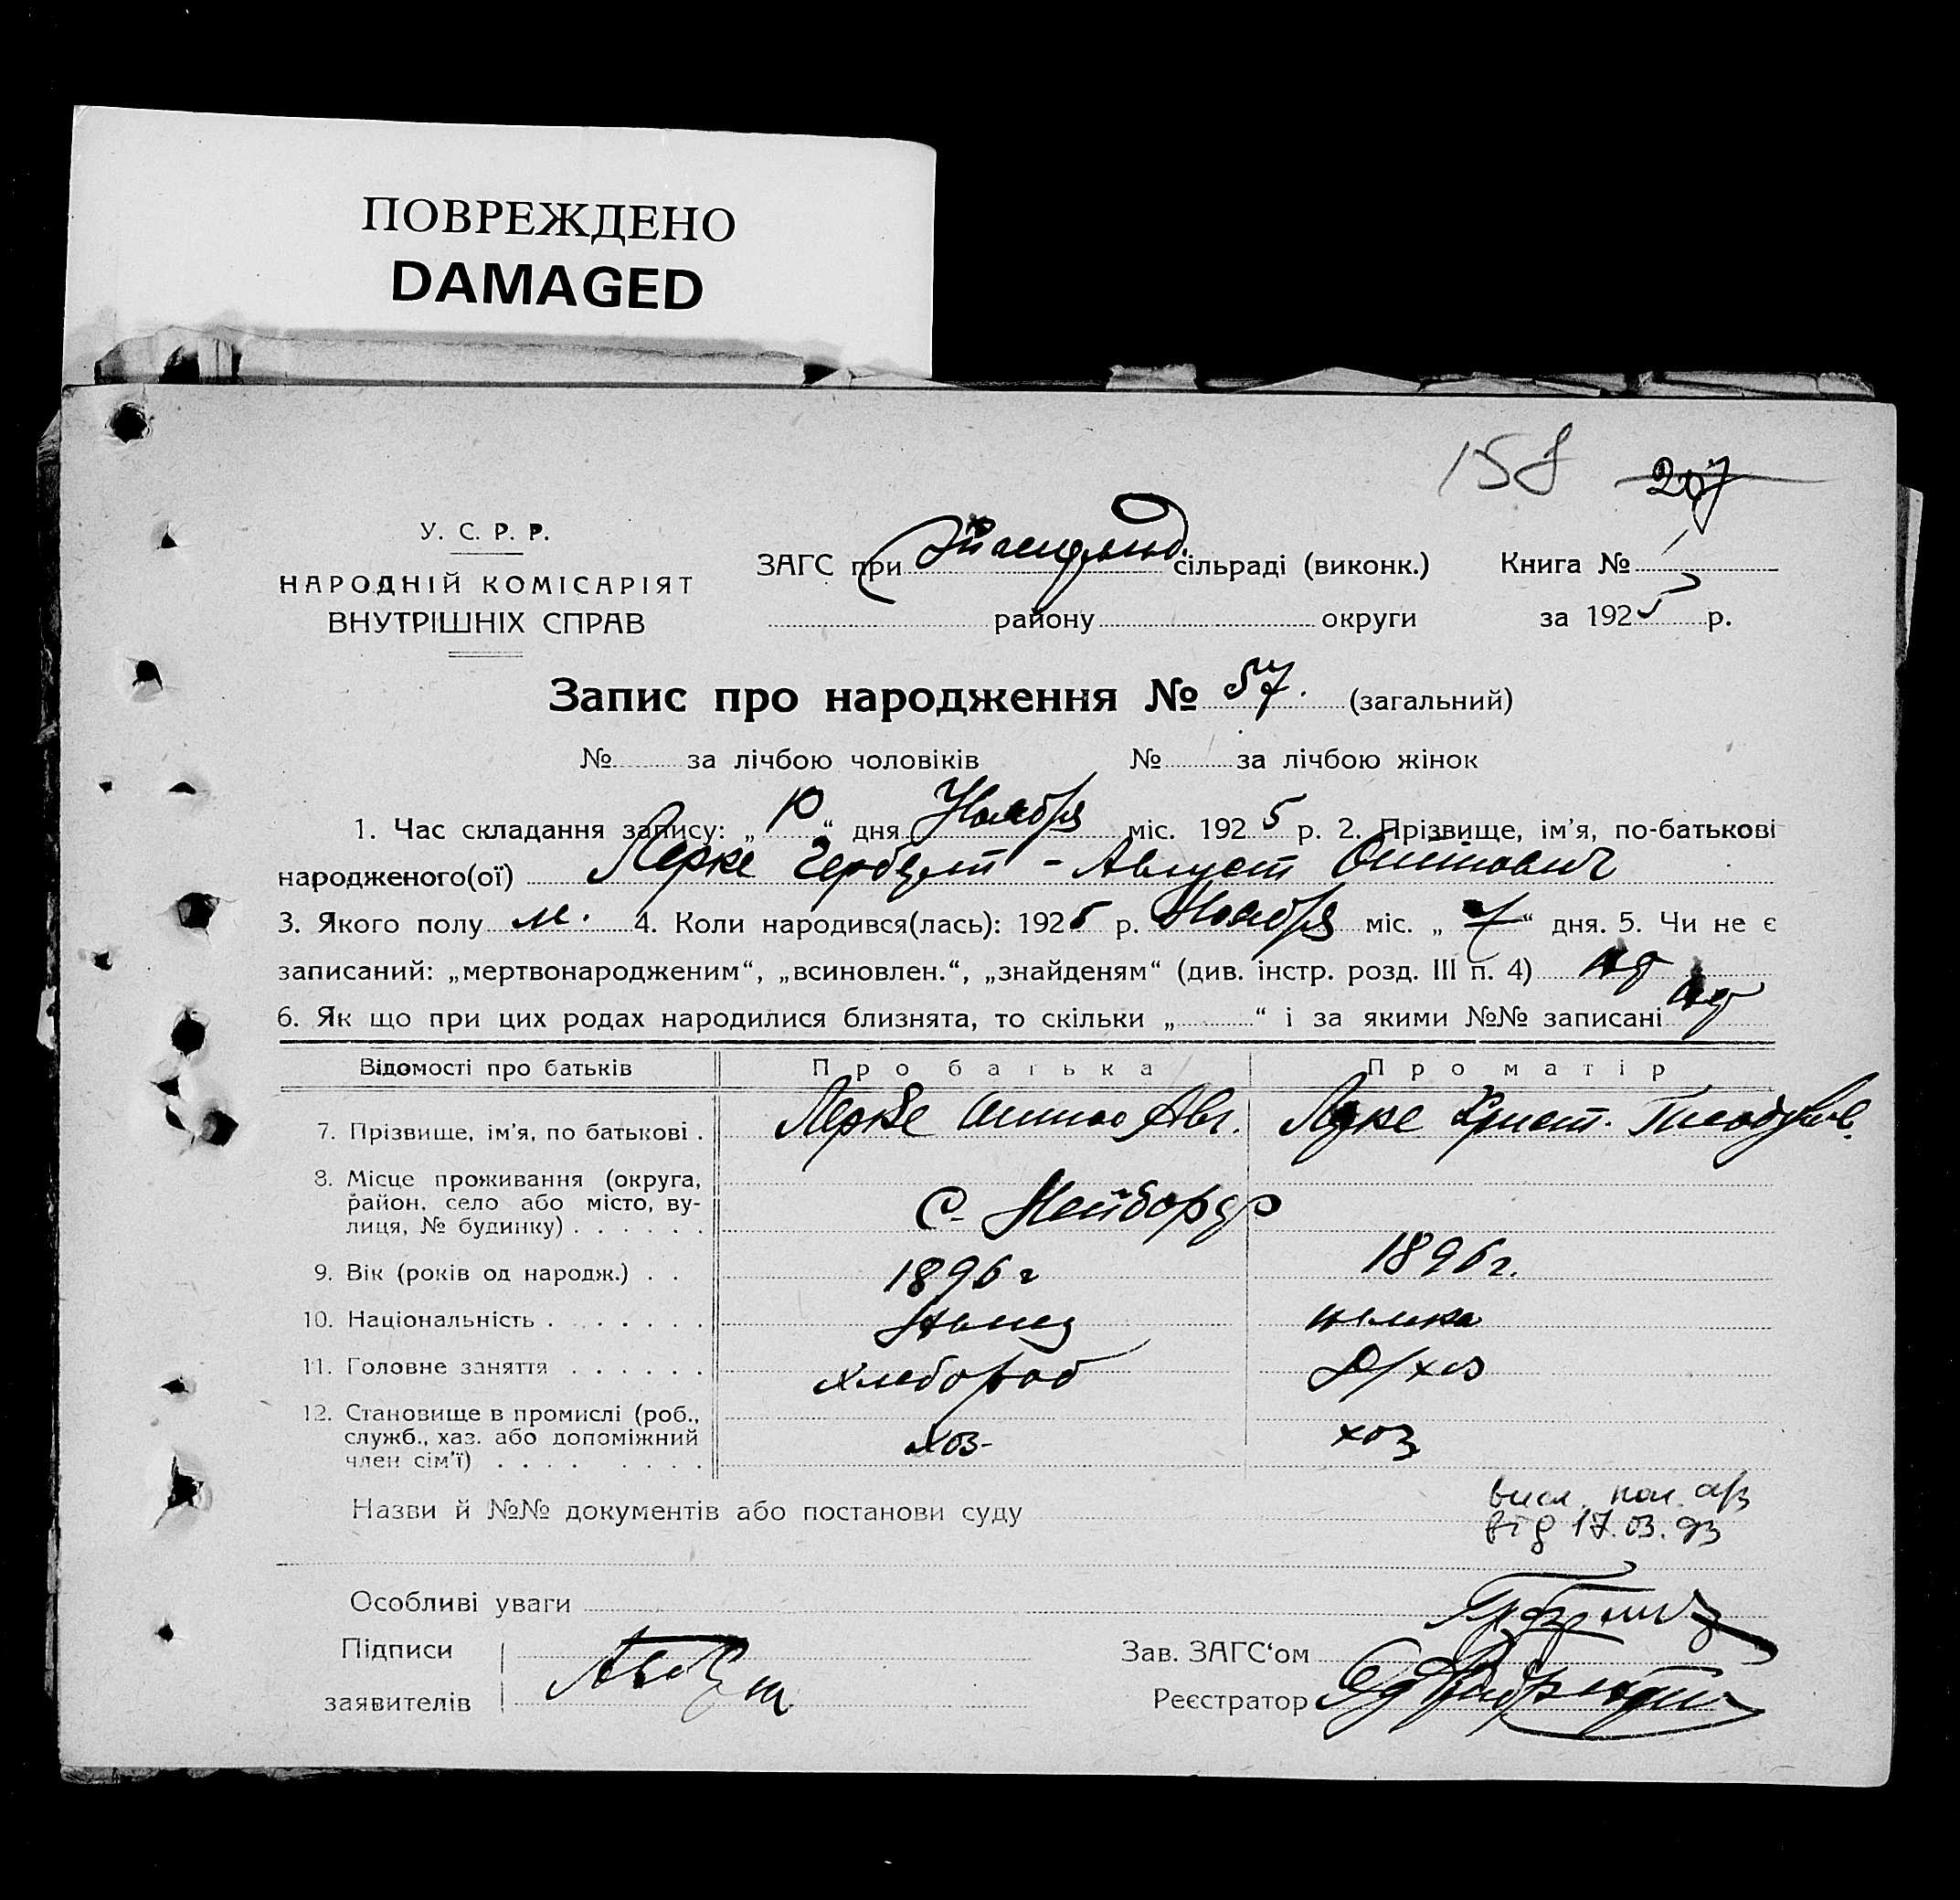 ПОВРЕЖДЕНО
DAMAGED
158 207
У. С. Р. Р.
НАРОДНІЙ КОМІСАРІЯТ
ВНУТРІШНІХ СПРАВ
ЗАГС при сільраді (виконк.) Книга №
району округи за 1925 р.
Запис про народження № 57. (загальний)
№ за лічбою чоловіків № за лічбою жінок
1. Час складання запису: „10“ дня Ноября міс. 1925 р. 2. Прізвище, ім'я, по-батькові
народженого(ої) Лерке Герберт - Август Оттович
3. Якого полу м. 4. Коли народився(лась): 1925 р. Ноября міс. „7“ дня. 5. Чи не є
записаний: „мертвонародженим“, „всиновлен.“, „знайденям“ (див. інстр. розд. III п. 4)
6. Як що при цих родах народилися близнята, то скільки „ “ і за якими №№ записані
Відомості про батьків Про батька Про матір
7. Прізвище, ім'я, по батькові . Лерке Авг. Лерке Христ.
8. Місце проживання (округа,
район, село або місто, ву-
лиця, № будинку) . . . . . . С. Нейбург
9. Вік (років од народж.) . . 1896 г 1896 г.
10. Національність . . . . . . . Немец немка
11. Головне заняття . . . . . . хлебороб Д/хоз
12. Становище в промислі (роб.,
служб., хаз. або допоміжний
член сім'ї) . . . . . . . . . хоз- хоз
Назви й №№ документів або постанови суду
від 17.03.93
Особливі уваги
Підписи
заявителів
Зав. ЗАГС‘ом
Реєстратор